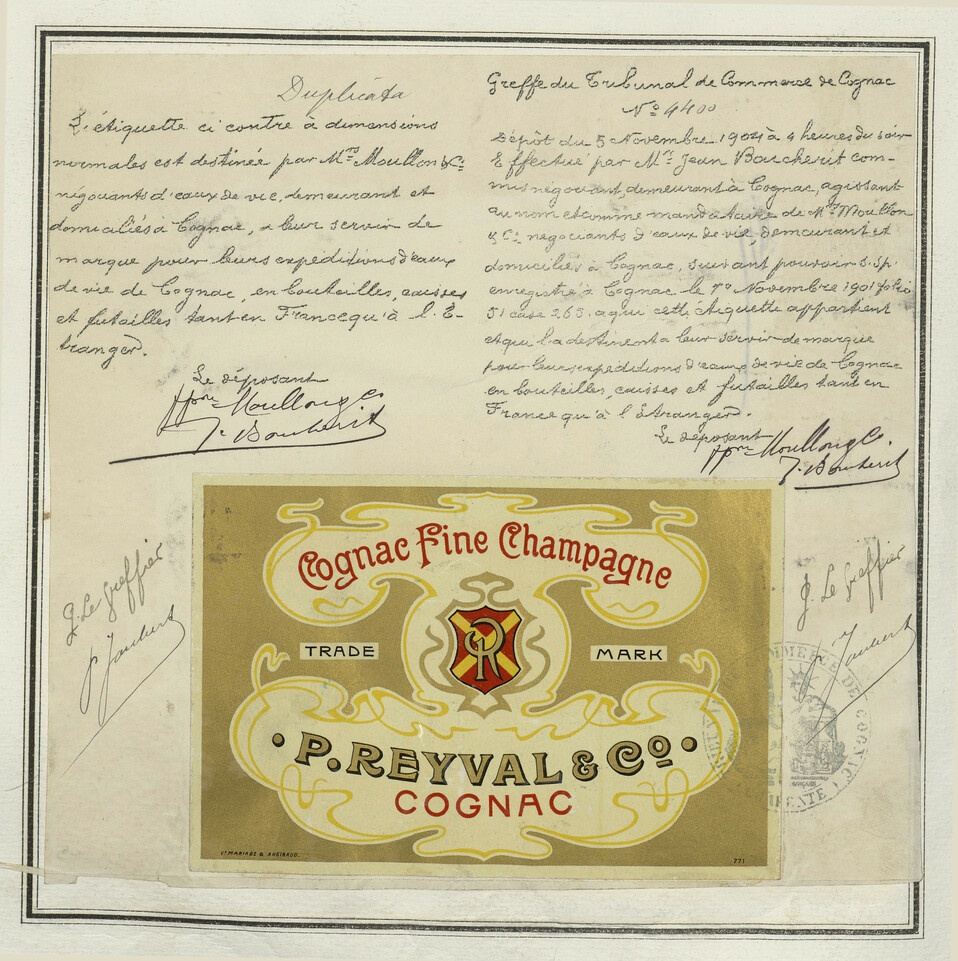 Duplicata
L'étiquette ci contre à dimensions
normales est destinée par M.rs Moullon & Cie
négociants d'eaux de vie, demeurant et
domiciliés à Cognac, a leur servir de
marque pour leurs expeditions d'eaux
de vie de Cognac, en bouteilles, caisses
et futailles tant en France qu'à l'É-
tranger.
Le déposant
ppon Moullon & Co
J. Boucherit
Greffe du Tribunal de Commerce de Cognac
No 4400
Dépôt du 5 Novembre 1904 à 4 heures du soir
Effectué par Mr. Jean Boucherit com-
mis négociant, demeurant à Cognac, agissant
au nom et comme mandataire de M.rs Moullon
& Cie négociants d'eaux de vie, demeurant et
domiciliés à Cognac, suivant pouvoir s. sp.
enregistré à Cognac le 7 Novembre 1901 folio
51 case 265, a qui cette étiquette appartient
et qui la destinent a leur servir de marque
pour leur expeditions d'eaux de vie de Cognac
en bouteilles, caisses et futailles tant en
France qu'à l'Étranger.
Le deposant
ppon Moullon & Co.
J. Boucherit
Cognac Fine Champagne
TRADE MARK
CR
• P. REYVAL & Co •
COGNAC
Vve MARIAGE & AUGIRAUD.
771
Le Greffier
Le Greffier
COMMERCE DE COGNAC